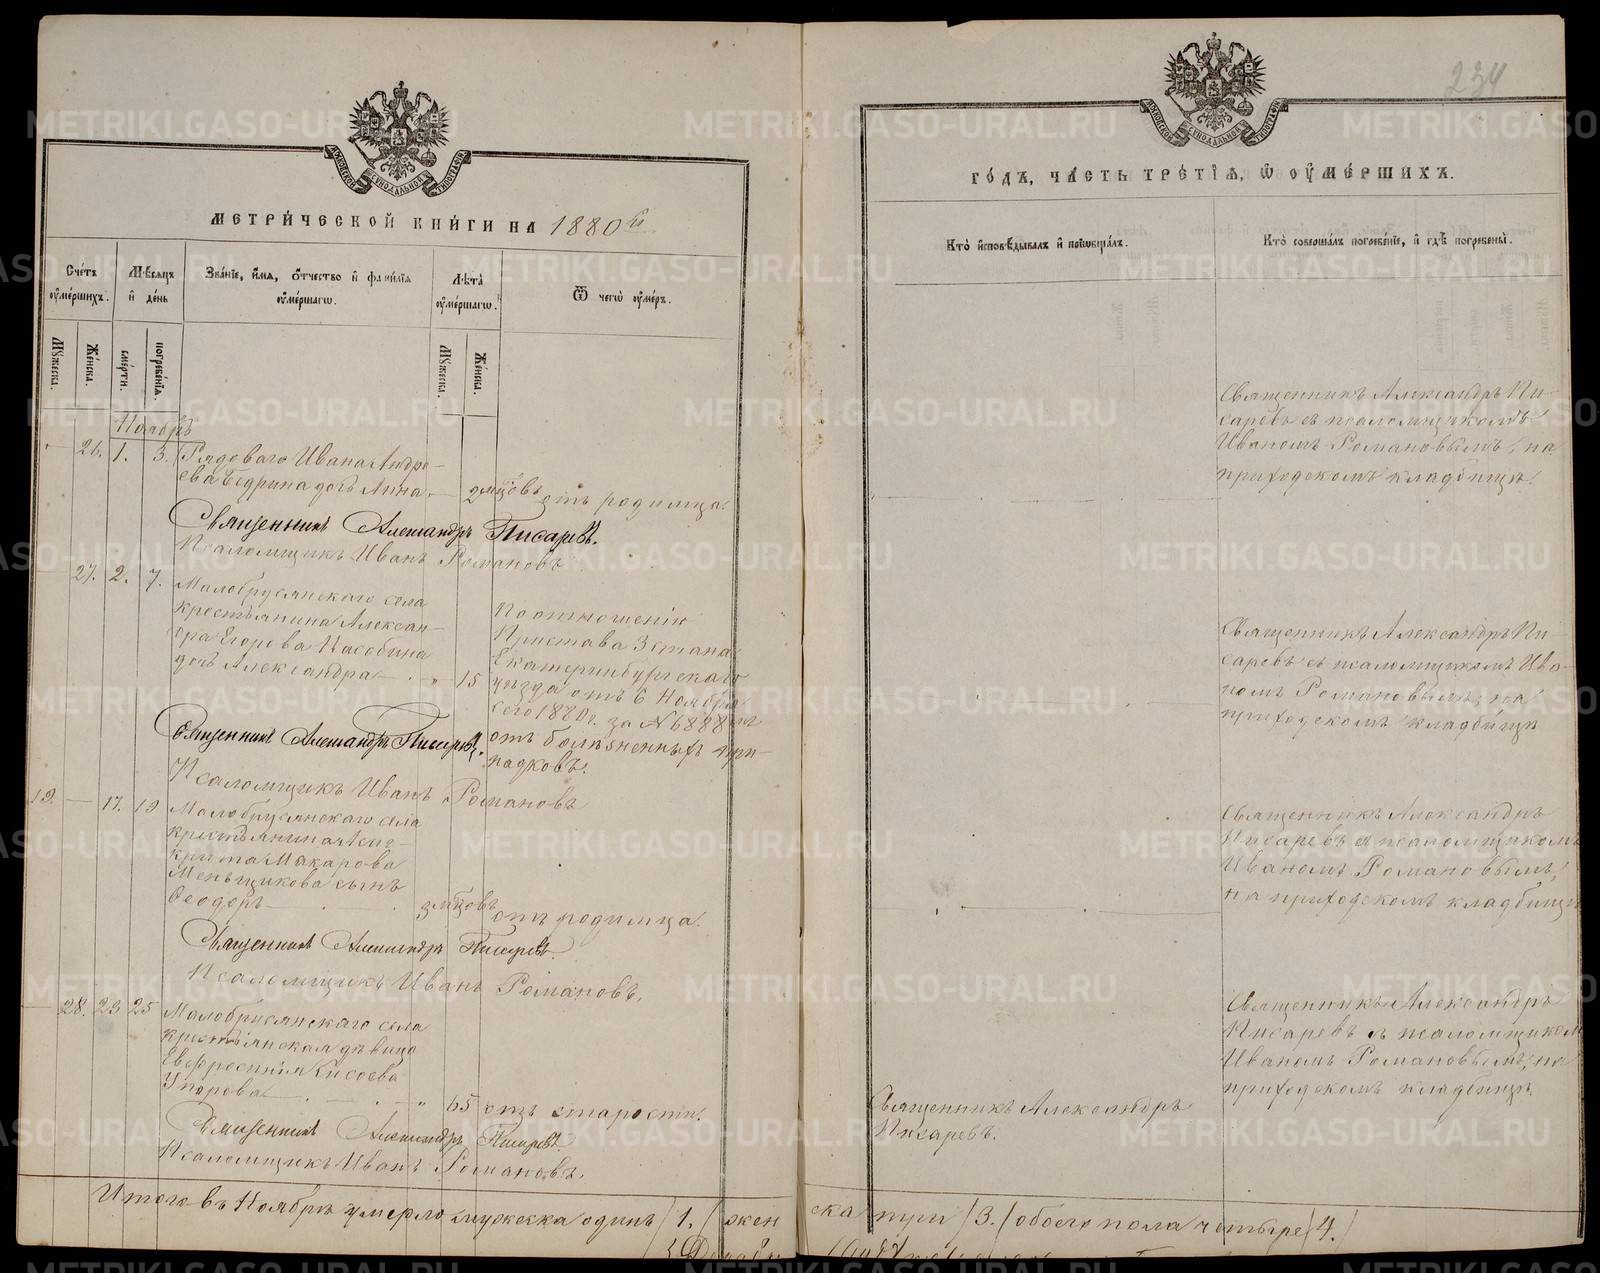 МЕТРИ́ЧЕСКОЙ КНИ́ГИ НА 1880й
Счетъ оумершихъ.
Мѣсяцъ и день
Званіе, имя, отчество и фамилія оумершагѡ.
Лѣта оумершагѡ.
Ѿ чегѡ оумеръ.
Мꙋжеска.
Женска.
смерти.
погребенія.
Мꙋжеска.
Женска.
Ноябрь
26. 1. 3. Рядоваго Ивана Андре-
ева Бедрина дочь Анна 2 мцовъ отъ родимца.
Священникъ Александръ Писаревъ.
Псаломщикъ Иванъ Романовъ
27. 2. 7. Малобрусянскаго села
крестьянина Алексан-
дра Егорова
дочь Александра 15
По отношенію
Пристава 3 стана
Екатеринбургскаго
уѣзда отъ 6 Ноября
сего 1880 г. за № 6888
отъ болѣзненныхъ при-
падковъ.
Священникъ Александръ Писаревъ.
Псаломщикъ Иванъ Романовъ
19. — 17. 19 Малобрусянскаго села
крестьянина
Макарова
Меньщикова сынъ
Ѳеодоръ 3 мцовъ отъ родимца.
Священникъ Александръ Писаревъ.
Псаломщикъ Иванъ Романовъ.
28. 23 25 Малобрусянскаго села
крестьянская дѣвица
Евфросинія
Упорова 65 отъ старости.
Священникъ Александръ Писаревъ.
Псаломщикъ Иванъ Романовъ.
Итого въ Ноябрѣ умерло мужеска одинъ /1./ жен
234
ГО́ДЪ, ЧА́СТЬ ТРЕ́ТІѦ, Ѡ ОУМЕ́РШИХЪ.
Кто исповѣдывалъ и пріѡбщалъ.
Кто совершалъ погребеніе, и гдѣ погребены.
Священникъ Александръ Пи-
саревъ съ псаломщикомъ
Иваномъ Романовымъ, на
приходскомъ кладбищѣ.
Священникъ Александръ Пи-
саревъ съ псаломщикомъ Ива-
номъ Романовымъ, на
приходскомъ кладбищѣ
Священникъ Александръ
Писаревъ съ псаломщикомъ
Иваномъ Романовымъ,
на приходскомъ кладбищѣ
Священникъ Александръ
Писаревъ.
Священникъ Александръ
Писаревъ съ псаломщиком
Иваномъ Романовымъ, на
приходскомъ кладбищѣ.
ска три /3./ обоего пола четыре /4./
METRIKI.GASO-URAL.RU